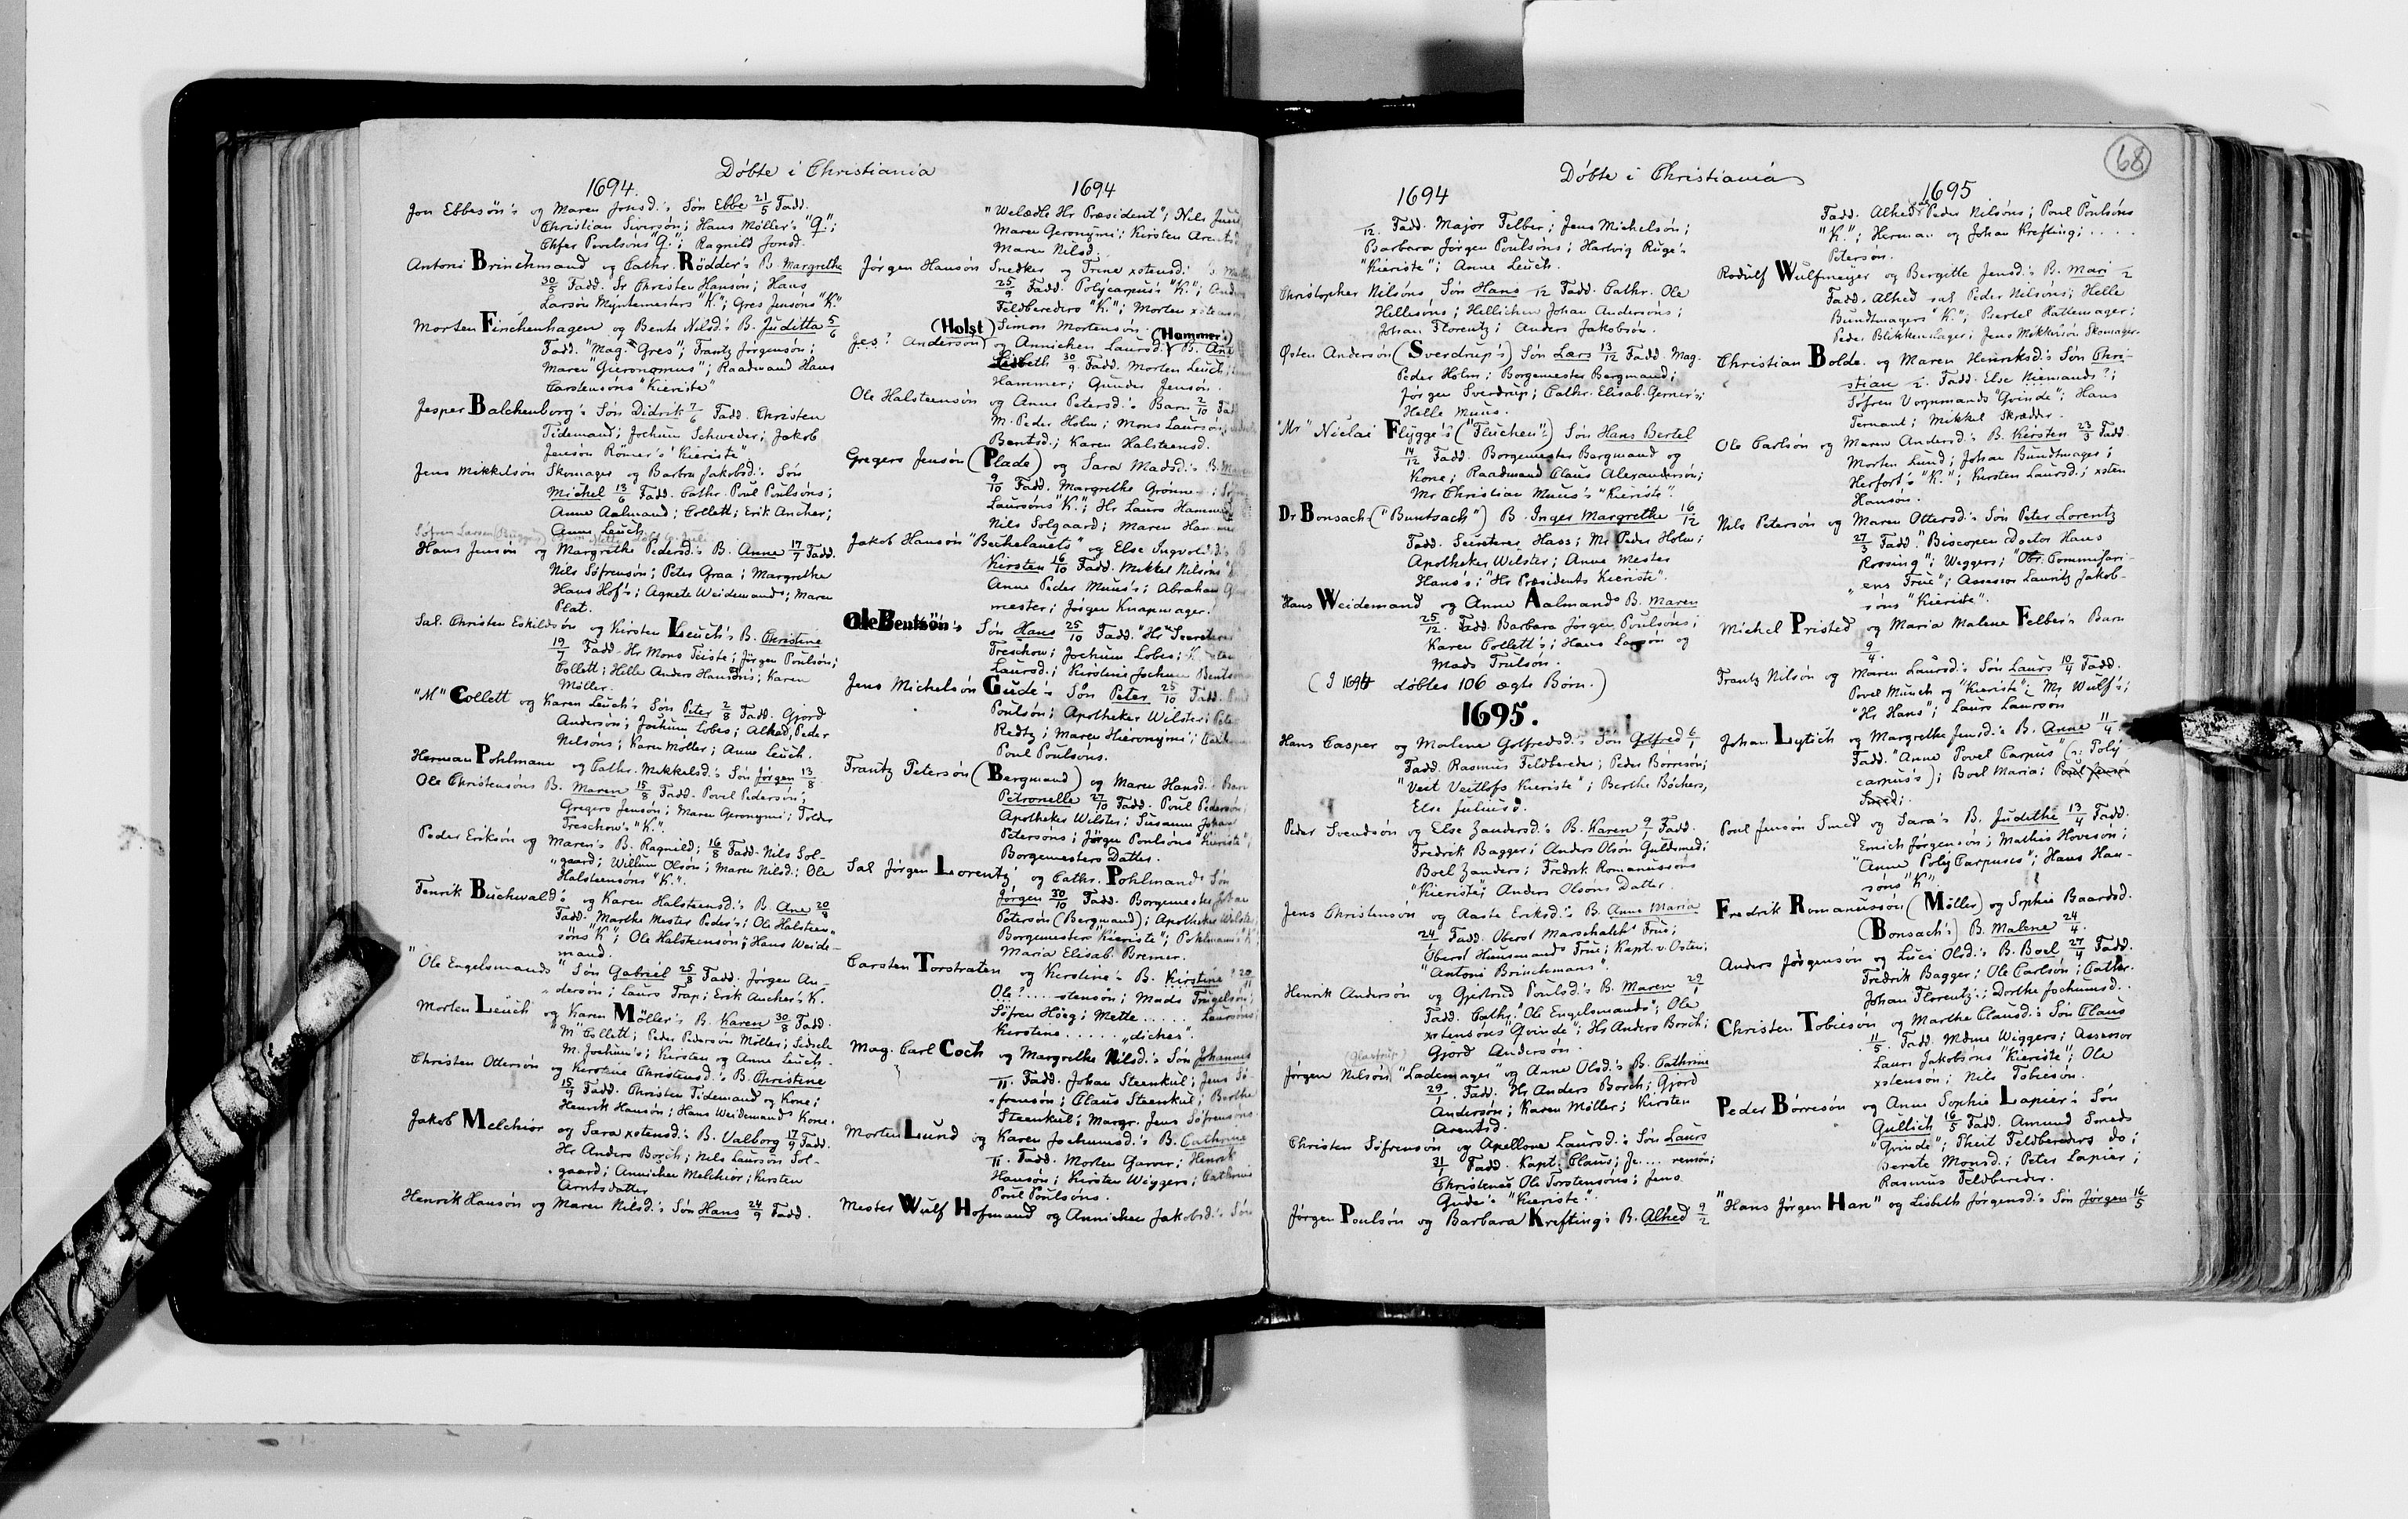 Döbte i Christiania
1694.
Jon Ebbesön's og Maren Jonsd.'s Sön Ebbe 21/5 Fadd.
Christian Siversön; Hans Möller's "Q.";
Chfer Povelsöns "Q."; Ragnild Jonsd.
Antoni Brinchmand og Cathr. Rödder's B. Margrethe
30/5 Fadd. Sr Christen Hansön; Hans
Larsön Myntemesters "K."; Gres Jensöns "K."
Morten Finchenhagen og Bente Nilsd.'s B. Juditta 5/6
Fadd. "Mag. Gres"; Frantz Jörgensön;
Maren "Hieronymus"; Raadmand Hans
Carstensöns "Kieriste"
Jesper Balchenborg's Sön Didrik 7/6 Fadd. Christen
Tidemand; Jochum Schweder; Jakob
Jenson Römer's "Kieriste"
Jens Mikkelsön Skomager og Barbra Jakobsd.'s Sön
Michel 13/6 Fadd. Cathr. Poul Poulsöns;
Anne Aalmand; Collett; Erik Ancher;
Anne Leuch.
Hans Jensön og Margrethe Pedersd.'s B. Anne 17/7 Fadd.
Nils Söfrensön; Peter Graa; Margrethe
Hans Hof's; Agnete Weidemands; Maren
Plat.
Sal. Christen Eskildsön og Kirsten Leuch's B. Christine
19/7 Fadd. Hr Mons Teiste; Jörgen Poulsön;
Collett; Helle Anders Hansöns; Karen
Möller.
"M" Collett og Karen Leuch's Sön Peter 2/8 Fadd. Gjord
Andersön; Jochum Lobes; Alhed, Peder
Nilsöns; Karen Möller; Anne Leuch.
Herman Pohlmann og Cathr. Mikkelsd.'s Sön Jörgen 13/8
Ole Christensöns B. Maren 15/8 Fadd. Povel Pedersön;
Gregers Jensön; Maren Geronymi; Tolder
Treschow's "K."
Peder Eriksön og Maren's B. Ragnild; 16/8 Fadd. Nils Sol-
"gaard; Willum Olsön; Maren Nilsd.; Ole
Halsteensöns "K."
Henrik Buchwald's og Karen Halsteensd.'s B. Ane 20/8
Fadd. Marthe Mester Peder's; Ole Halsteen-
söns "K"; Ole Halstensön; Hans Weide-
mand.
"Ole Engelsmands" Sön Gabriel 25/8 Fadd. Jörgen An-
dersön; Laurs Trap; Erik Ancher's K.
Morten Leuch og Karen Möller's B. Karen 30/8 Fadd.
"M" Collett; Peder Pedersön Möller; Sidsele
M. Jochum's; Kirsten og Anne Leuch.
Christen Ottersön og Kirstine Christensd.'s B. Christine
15/9 Fadd. Christen Tidemand og Kone;
Henrik Hansön; Hans Weidemands Kone.
Jakob Melchior og Sara xstensd.'s B. Valborg 17/9 Fadd.
Hr Anders Borch; Nils Laursön Sol-
gaard; Annichen Melchior; Kirsten
Arntsdatter
Henrik Hansön og Maren Nilsd.'s Sön Hans 24/9 Fadd.
1694
"Welædle Hr Præsident"; Nils
Maren Geronymi; Kirsten
Maren Nilsd.
Jörgen Hansön Snedker og Trine xstensd.'s
25/9 Fadd. Polycarpus's "K.";
Feldbereders "K."; Morten
Simon Mortensön.
Jes? Andersön (Holst) og Annichen Laursd. (Hammer's) B. Ane
Lisbeth 30/9 Fadd. Morten Leuch;
Hammer; Gunder Jensön.
Ole Halsteensön og Anne Petersd.'s Barn 2/10 Fadd.
M. Peder Holm; Mons Laursön;
Bentsd.; Karen Halsteensd.
Gregers Jensön (Plade) og Sara Madsd.'s B.
9/10 Fadd. Margrethe Grönne
Laursöns "K."; Hr Laurs Hammer
Nils Solgaard; Maren Hammer
Jakob Hansön "Beckelauets" og Else Ingvoldsd.'s B
Kirsten 16/10 Fadd. Mikkel Nilsöns
Anne Peder Muus's; Abraham
mester; Jörgen Knapmager.
Ole Bentsön's Sön Hans 25/10 Fadd. "Hr" Secreterer
Treschow; Jochum Lobes;
Laursd.; Kirstine Jochum
Jens Michelsön Gude's Sön Peter 25/10 Fadd.
Poulsön; Apotheker Wilster;
Redtz; Maren Hieronymi;
Poul Poulsöns.
Frantz Petersön (Bergmand) og Maren Hansd.'s Barn
Petronelle 27/10 Fadd. Poul Pedersön;
Apotheker Wilster; Susanne Johan
Petersöns; Jörgen Poulsöns "Kieriste";
Borgemesters Datter.
Sal Jörgen Lorentz' og Cathr. Pohlmand's Sön
Jörgen 30/10 Fadd. Borgemester Johan
Petersön (Bergmand); Apotheker Wilster
Borgemesters "Kieriste"; Pohlmann's "K"
Maria Elisab. Bremer.
Carsten Torstraten og Kirstine's B. Kirstine 20/11
Ole? .... stensön; Mads Trugelsön;
Söfren Höeg; Mette ..... Laursöns;
Kirstine ..... "diches".
Mag. Carl Coch og Margrethe Nilsd.'s Sön Johannes
/11. Fadd. Johan Steenkul; Jens Sö-
frensön; Claus Steenkul; Berthe
Steenkul; Margr. Jens Söfrensöns
Morten Lund og Karen Jochumsd.'s B. Cathrine
/11. Fadd. Morten Garver; Henrik
Hansön; Kirsten Wiggers; Cathrine
Poul Poulsöns.
Mester Wulf Hofmand og Annichen Jakobsd.'s Sön
68
Döbte i Christiania
1694
/12. Fadd. Major Felber; Jens Michelsön;
Barbara Jörgen Poulsöns; Hartvig Ruge's
"Kieriste"; Anne Leuch.
Christopher Nilsöns Sön Hans /12 Fadd. Cathr. Ole
Hellesöns; Hellichen Johan Andersöns;
Johan Florentz; Anders Jakobsön.
Østen Andersön (Sverdrup's) Sön Lars 13/12 Fadd. Mag.
Peder Holm; Borgemester Bergmand;
Jörgen Sverdrup; Cathr. Elisab. Gerner's;
Helle Muus.
"Mr" Niclai Flygge's ("Fluchen"?) Sön Hans Bertel
14/12 Fadd. Borgemester Bergmand og
Kone; Raadmand Claus Alexandersön;
Mr Christian Muus's "Kieriste".
Dr Bonsach ("Buntsach") B. Inger Margrethe 16/12
Fadd. Secreterer Hass; Mr Peder Holm;
Apotheker Wilster; Anne Mester
Hans's; "Hr Præsidents Kieriste".
Hans Weidemand og Anne Aalmands B. Maren
25/12. Fadd. Barbara Jörgen Poulsöns;
Karen Collett's; Hans Larsön og
Mads Trulsön.
(I 1694 döbtes 106 ægte Börn.)
1695.
Hans Casper og Malene Golfredsd.'s Sön Golfred 6/1
Fadd. Rasmus Feldbereder; Peder Börresön;
"Veit Veitlofs Kieriste"; Berthe Böchers,
Else Juliusd.
Peder Svendsön og Else Zandersd.'s B. Karen 9/1 Fadd.
Fredrik Bagger; Anders Olsön Guldsmed;
Boel Zanders; Fredrik Romanussöns
"Kieriste"; Anders Olsöns Datter.
Jens Christensön og Aaste Eriksd.'s B. Anne Maria
24/1 Fadd. Oberst Marschalch's Frue;
Oberst Hunsmands Frue; Kapt. v. Osten;
"Antoni Brinchmans".
Henrik Andersön og Gjertrud Poulsd.'s B. Maren 29/1
Fadd. Cathr. "Ole Engelsmands"; Ole
xstensöns "Qvinde"; Hr Anders Borch;
Gjord Andersön.
Jörgen Nilsön "Lademager" og Anne Olsd.'s B. Cathrine
29/1. Fadd. Hr Anders Borch; Gjord
Andersön; Karen Möller; Kirsten
Arentsd.
Christen Söfrensön og Apellone Laursd.'s Sön Laurs
31/1 Fadd. Kapt. Claus; Je.... rensön;
Christence Ole Torstensöns; Jens
Gude's "Kieriste".
Jörgen Poulsön og Barbara Krefting's B. Alhed 9/2
1695
Fadd. Alhed sal Peder Nilsöns; Poul Poulsöns
"K."; Herman og Johan Krefting; .....
Peterson.
Rodulf Wulfmeyer og Bergitte Jensd.'s B. Mari /2
Fadd. Alhed sal Peder Nilsöns; Helle
Bundtmagers "K."; Bertel Hattemager;
Peder Blikkenslager; Jens Mikkelsön Skomager.
Christian Bolde. og Maren Henriksd.'s Sön Chri-
stian /2. Fadd. Else Niemands?;
Söfren Vognmands "Qvinde"; Hans
Fernant; Mikkel Skrædder.
Ole Carlsön og Maren Andersd.'s B. Kirsten 23/3 Fadd.
Morten Lund; Johan Bundtmager;
Herfort's "K."; Kirsten Laursd.; xsten
Hansön.
Nils Petersön og Maren Ottersd.'s Sön Peter Lorentz
27/3 Fadd. "Biscopen Doctor Hans
Rosing"; Wiggers; "Obr. Commisari-
"ens Frue"; Assessor Lauritz Jakob-
söns "Kieriste".
Michel Pristed og Maria Malene Felber's Barn
9/4.
Frantz Nilsön og Maren Laursd.'s Sön Laurs 10/4 Fadd.
Povel Munch og "Kieriste"; Mr Wulf's;
"Hr Hans"; Laurs Laursön
Johan Lytich og Margrethe Jensd.'s B. Anne 11/4
Fadd. "Anne Povel Carpus" (: Poly-
carpus's); Boel Maria; Poul Jensön
Smed;
Poul Jensön Smed og Sara's B. Judithe 13/4 Fadd.
Emich Jörgensön; Mathis Hovesön;
"Anne Poly Carpuses"; Hans Han-
söns "K".
Fredrik Romanussön (Möller) og Sophie Baardsd.
(Bonsach's) B. Malene 24/4.
Anders Jörgensön og Luci Olsd.'s B. Boel 27/4 Fadd.
Fredrik Bagger; Ole Carlsön; Cathr.
Johan Florentz.; Dorthe Jochumsd..
Christen Tobiesön og Marthe Clausd.'s Sön Claus
11/5. Fadd. Mdme Wiggers; Assessor
Laurs Jakobsöns "Kieriste"; Ole
xstensön; Nils Tobiesön.
Peder Börresön og Anne Sophie Lapier's Sön
Gullich 16/5 Fadd. Amund Smeds
"Qvinde"; Theit Feldbereders do;
Berete Monsd.; Peter Lapier;
Rasmus Feldbereder.
"Hans Jörgen Han" og Lisbeth Jörgensd.'s Sön Jörgen 16/5